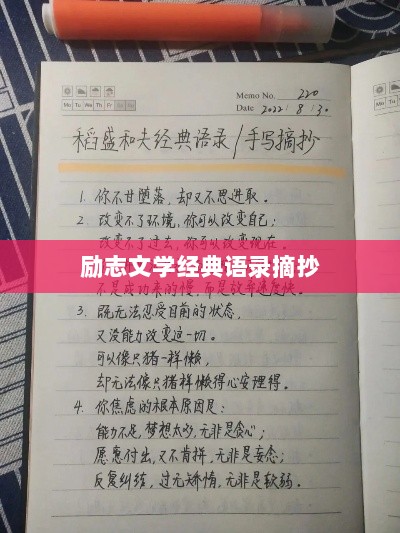 Memo No. 220
Mo Tu We Th Fr Sa Su
Date 2022 / 8 / 30
稻盛和夫经典语录/手写摘抄
1. 你不甘堕落，却又不思进取。
2. 改变不了环境，你可以改变自己；
改变不了过去，你可以改变现在。
励志文学经典语录摘抄
不是成功来的慢，而是放弃速度快。
3. 既无法忍受目前的状态，
又没能力改变这一切。
可以像只猪一样懒，
却无法像只猪样懒得心安理得。
4. 你焦虑的根本原因是：
能力不足，梦想太多，无非是贪心；
愿意付出，又不肯拼，无非是妄念；
反复纠结，过无矫情，无非是软弱。